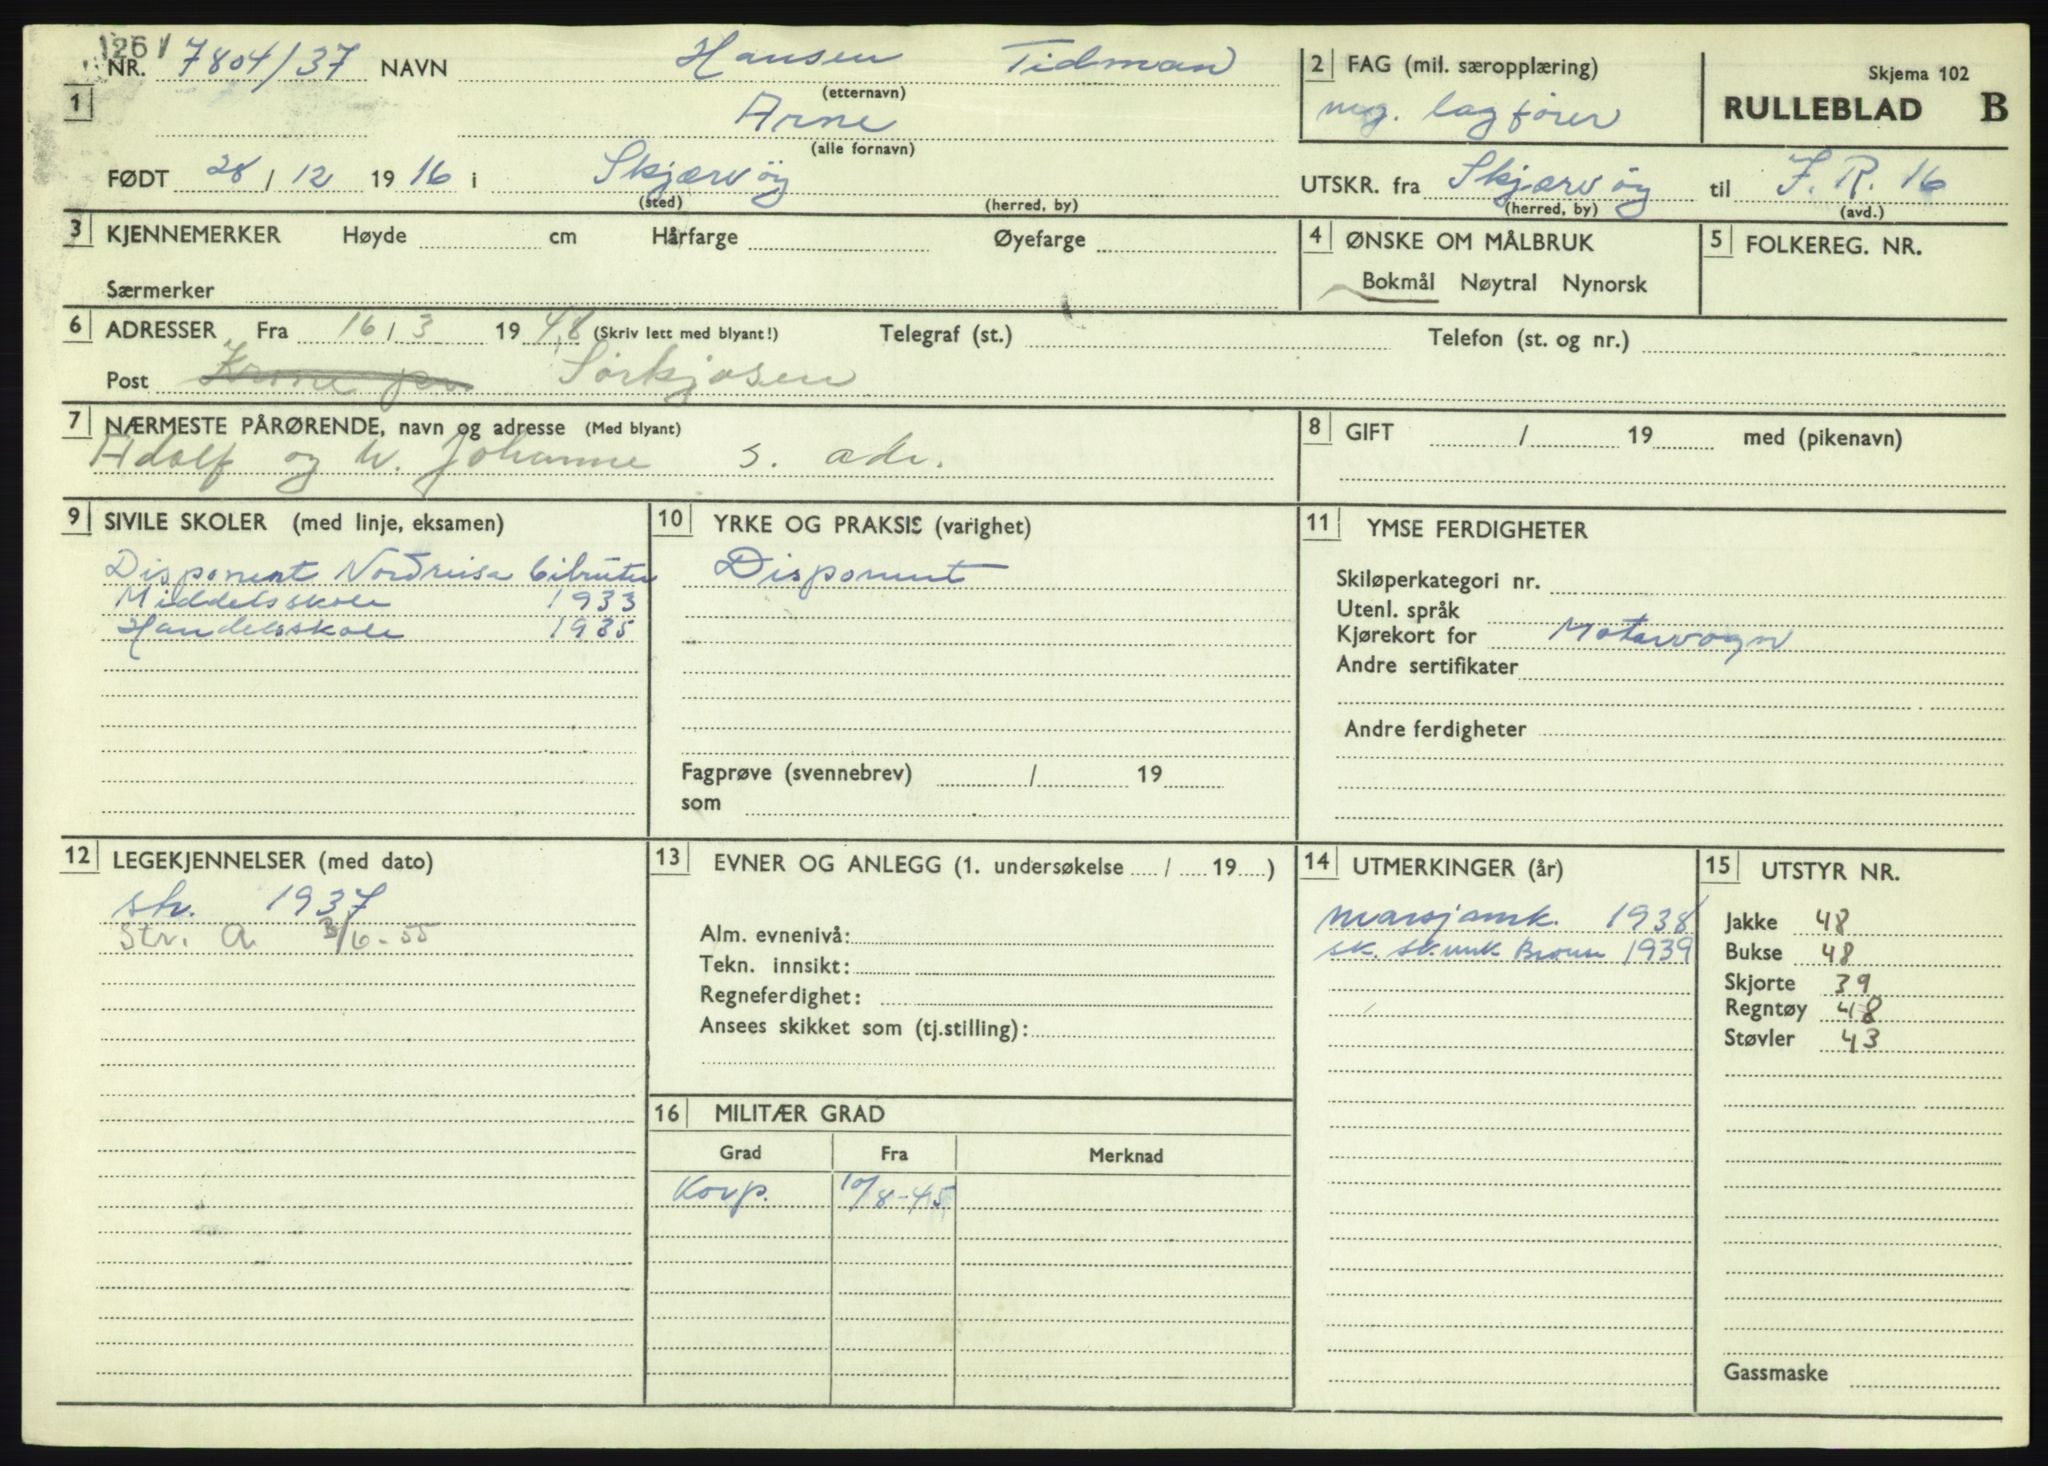 126
NR. 7804/37 NAVN Hansen Tidman
(etternavn)
1
Arne
(alle fornavn)
FØDT 28 / 12 1916 i Skjærvöy
(sted) (herred, by)
2 FAG (mil. særopplæring)
mg. lagfører
Skjema 102
RULLEBLAD B
UTSKR. fra Skjærvöy til I.R. 16
(herred, by) (avd.)
3 KJENNEMERKER Høyde cm Hårfarge Øyefarge
Særmerker
4 ØNSKE OM MÅLBRUK
Bokmål Nøytral Nynorsk
5 FOLKEREG. NR.
6 ADRESSER Fra 16 / 3 1948 (Skriv lett med blyant!) Telegraf (st.) Telefon (st. og nr.)
Post Sörkjosen
7 NÆRMESTE PÅRØRENDE, navn og adresse (Med blyant)
Adolf og h. Johanne s. adr.
8 GIFT / 19 med (pikenavn)
9 SIVILE SKOLER (med linje, eksamen)
Disponent Nordreisa bilruter
Middelsskole 1933
Handelsskole 1935
10 YRKE OG PRAKSIS (varighet)
Disponent
Fagprøve (svennebrev) / 19
som
11 YMSE FERDIGHETER
Skiløperkategori nr.
Utenl. språk
Kjørekort for Motorvogn
Andre sertifikater
Andre ferdigheter
12 LEGEKJENNELSER (med dato)
str. 1937
Str. A. 3/6-55
13 EVNER OG ANLEGG (1. undersøkelse / 19 )
Alm. evnenivå:
Tekn. innsikt:
Regneferdighet:
Ansees skikket som (tj.stilling):
14 UTMERKINGER (år)
marsjmrk. 1938
sk. sk. mrk Bronse 1939
15 UTSTYR NR.
Jakke 48
Bukse 48
Skjorte 39
Regntøy 48
Støvler 43
Gassmaske
16 MILITÆR GRAD
Grad Fra Merknad
Korp. 10/8-45